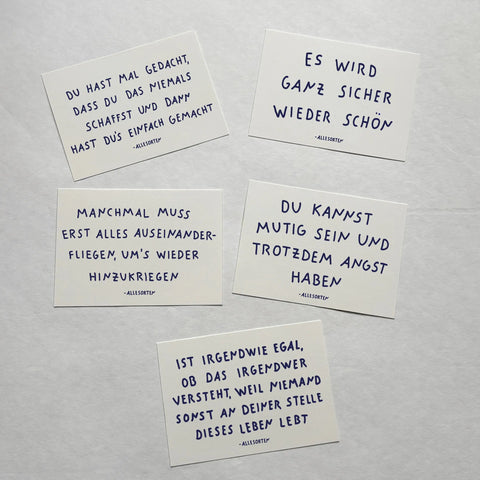 DU HAST MAL GEDACHT,
DASS DU DAS NIEMALS
SCHAFFST UND DANN
HAST DU'S EINFACH GEMACHT
-ALLESORTEN
ES WIRD
GANZ SICHER
WIEDER SCHÖN
-ALLESORTEN
MANCHMAL MUSS
ERST ALLES AUSEINANDER-
FLIEGEN, UM'S WIEDER
HINZUKRIEGEN
-ALLESORTEN
DU KANNST
MUTIG SEIN UND
TROTZDEM ANGST
HABEN
-ALLESORTEN
IST IRGENDWIE EGAL,
OB DAS IRGENDWER
VERSTEHT, WEIL NIEMAND
SONST AN DEINER STELLE
DIESES LEBEN LEBT
-ALLESORTEN